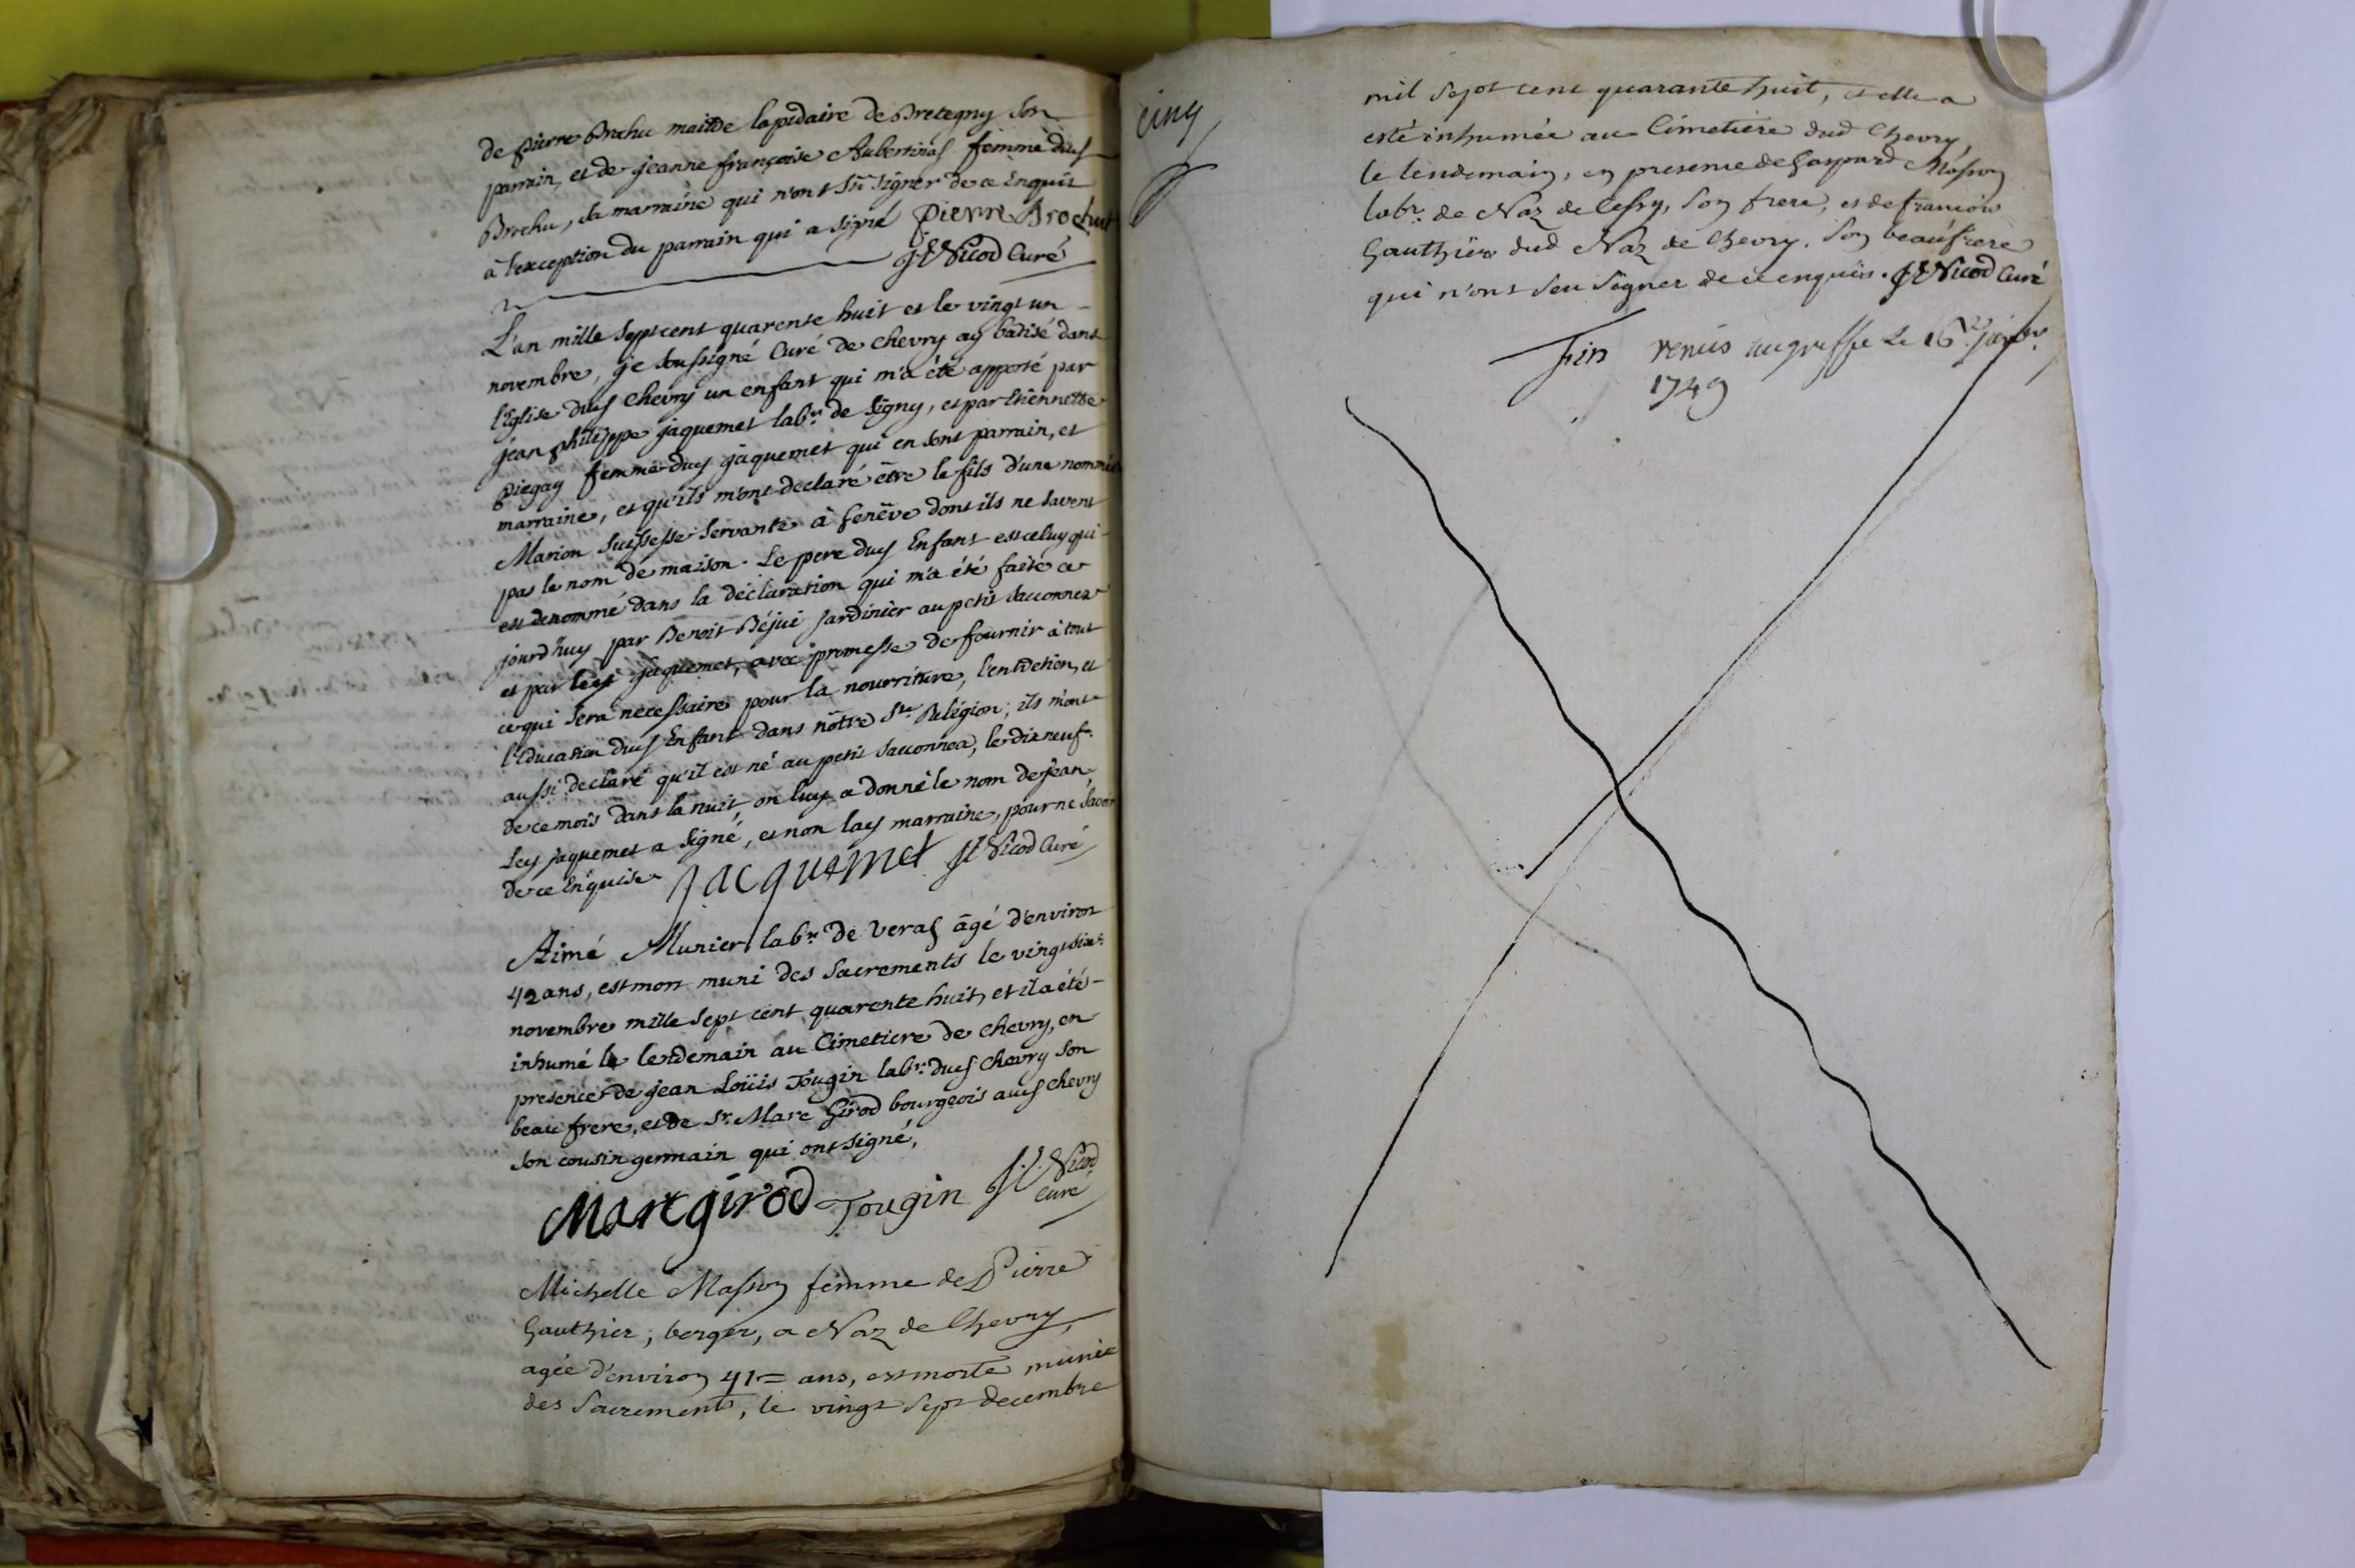 de pierre Brochu maitre lapidaire de Bretegny son
parrain, et de jeanne françoise Aubertinas femme dud
Brochu, sa marraine qui n'ont sû signer de ce Enquis
à l'exception du parrain qui a signé Pierre Brochut
J.C. Nicod Curé
L'an mille sept cent quarente huit et le vingt un
novembre, je soussigné Curé de Chevry ay batisé dans
l'Eglise dud Chevry un enfant qui m'a été apporté par
jean philippe jaquemet labr. de Segny, et par Etiennette
piegay femme dud jaquemet qui en sont parrain, et
marraine, et qu'ils m'ont declaré être le fils d'une nommée
Marion Suissesse servante à Genêve dont ils ne savent
pas le nom de maison. Le pere dud Enfant est celuy qui
est denommé dans la déclaration qui m'a été faite ce
jourd'huy par Benoit Béjui jardinier au petit Sacconnex
et par led jaquemet, avec promesse de fournir à tout
ce qui sera necessaire pour la nourriture, l'entretien, et
l'éducation dud Enfant dans nôtre Ste. Religion; ils m'ont
aussi declaré qu'il est né au petit Sacconnex, le dixneuf
de ce mois dans la nuit, on luy a donné le nom de jean,
Led jaquemet a signé, et non lad marraine, pour ne savoir
de ce Enquise Jacquemet J.C. Nicod Curé
Aimé Munier labr. de Veras âgé d'environ
42 ans, est mort muni des Sacrements le vingt six
novembre mille sept cent quarente huit, et il a été
inhumé le lendemain au Cimetiere de Chevry, en
presence de jean Loüis Tougin labr. dud Chevry son
beau frere, et de Sr. Marc Girod bourgeois aud Chevry
son cousin germain qui ont signé,
Marc girod Tougin J.C. Nicod
Curé
Michelle Masson femme de Pierre
Gauthier, berger, a Naz de Chevry,
agée d'environ 41 = ans, est morte munie
des Sacrements, le vingt Sept decembre
cinq
mil sept cent quarante huit, et elle a
esté inhumée au Cimetiere dud Chevry,
le lendemain, en presence de Gaspard Masson
labr. de Naz de Cessy, son frere, et de francois
Gauthier dud Naz de Chevry, son beaufrere
qui n'ont seu signer de ce enquis. J.C. Nicod Curé
Fin remis au greffe le 16e janvr
1749